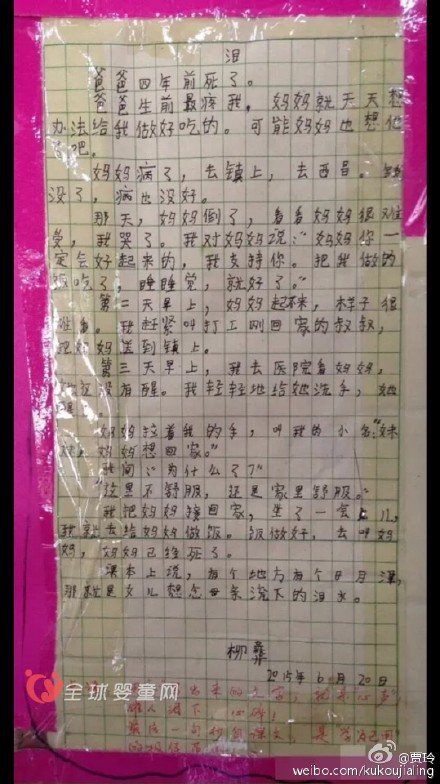 泪
爸爸四年前死了。
爸爸生前最疼我，妈妈就天天想
办法给我做好吃的。可能妈妈也想他
了吧。
妈妈病了，去镇上，去西昌。钱
没了，病也没好。
那天，妈妈倒了，看看妈妈很难
受，我哭了。我对妈妈说：“妈妈你一
定会好起来的，我支持你。把我做的
饭吃了，睡睡觉，就好了。”
第二天早上，妈妈起不来，样子很
难看。我赶紧叫打工刚回家的叔叔，
把妈妈送到镇上。
第三天早上，我去医院看妈妈，
她还没有醒。我轻轻地给她洗手，她
醒了。
妈妈拉着我的手，叫我的小名：“妹
妹，妈妈想回家。”
我问：“为什么了？”
“这里不舒服，还是家里舒服。”
我把妈妈接回家，坐了一会儿，
我就去给妈妈做饭。饭做好，去叫妈
妈，妈妈已经死了。
课本上说，有个地方有个日月潭，
那就是女儿想念母亲流下的泪水。
柳彝
2015年6月20日
全球婴童网
@贾玲
weibo.com/kukoujialing